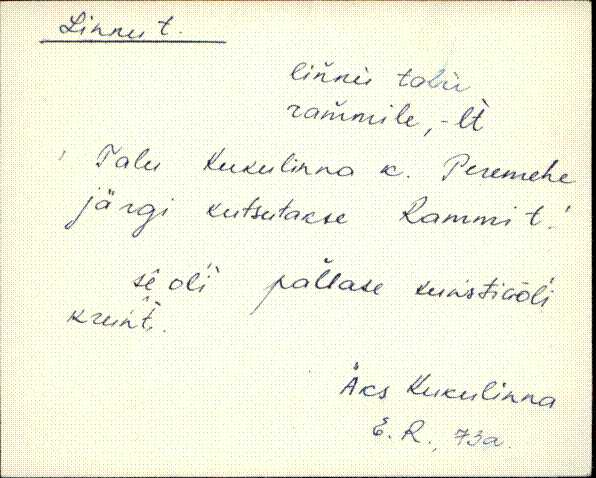 Linnu t.
liňnù talu
ram̆mile, -lt̀
Talu Kukulinna k. Peremehe
järgi kutsutakse Rammi t.
sê olì pal̆lase kunstikòlì
krunt̀.
Äks Kukulinna
E. R., 73a.